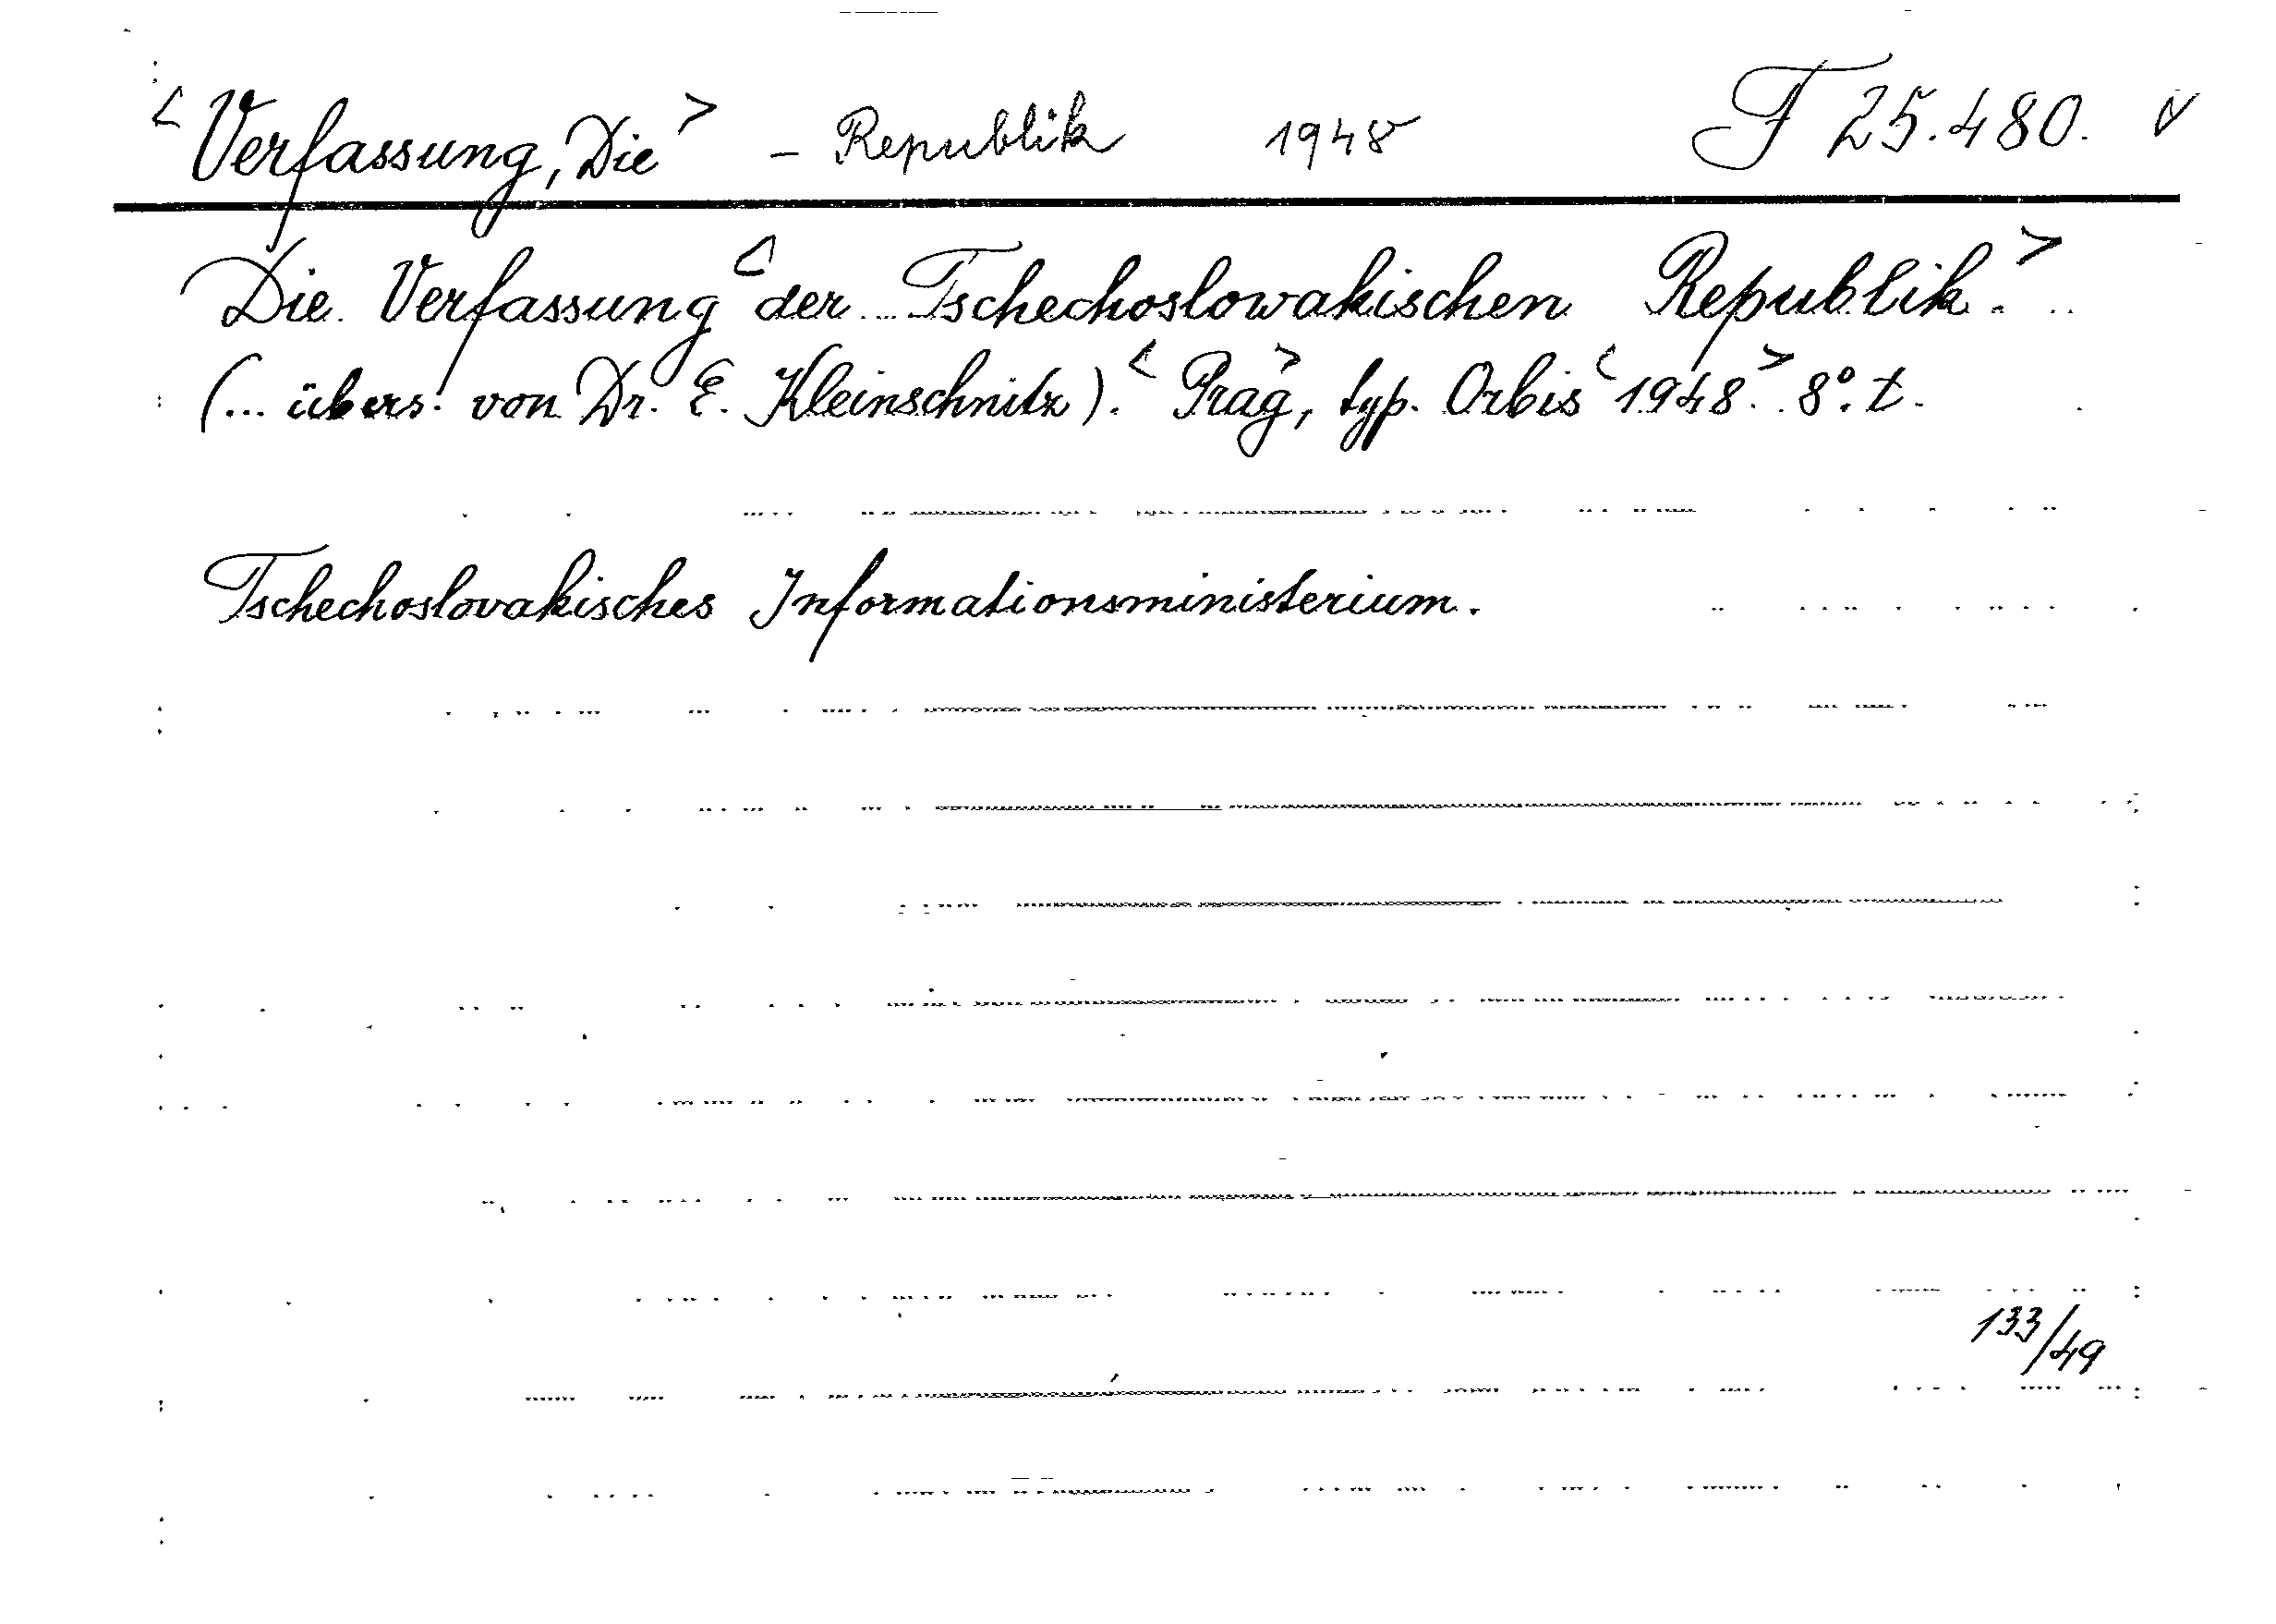 <Verfassung, Die> - Republik 1948 F 25.480. v
Die Verfassung <der Tschechoslowakischen Republik.>
(... übers. von Dr. E. Kleinschnitz). <Prag>, typ. Orbis <1948>. 8°. t.
Tschechoslovakisches Informationsministerium.
133/49